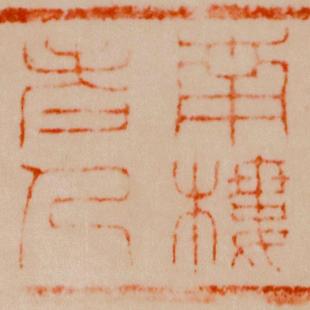 南樓
老人